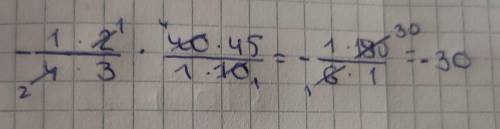 - (1 · 2 1) / (2 4 · 3) · (4 40 · 45) / (1 · 10 1) = - (1 · 180 30) / (1 6 · 1) = - 30